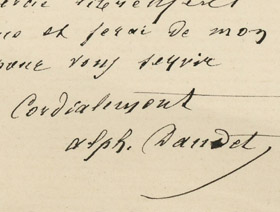 us et ferai de mon
pour vous servir
Cordialement
Alph. Daudet